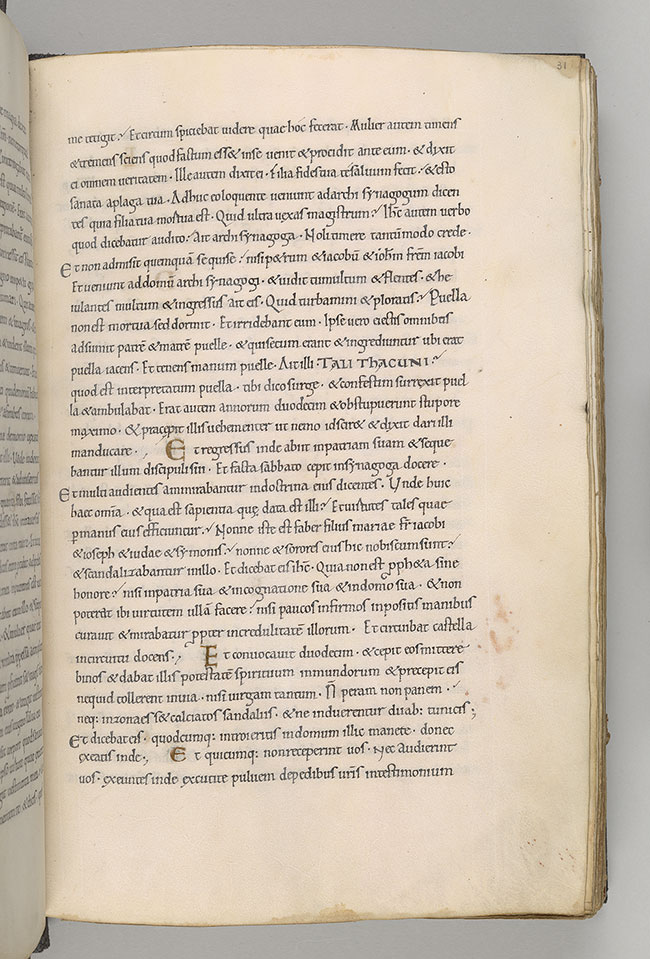 31
me tetigit. Et circum spiciebat videre quae hoc fecerat. Mulier autem timens
& tremens sciens quod factum ess& in se venit & procidit ante eum. & dixit
ei omnem veritatem. Ille autem dixit ei. Filia fides tua te salvum fecit. & esto
sanata a plaga tua. Adhuc eo loquente veniunt ad archi synagogum dicen
tes quia filia tua mortua est. Quid ultra vexas magistrum? Ihc autem verbo
quod dicebatur audito. Ait archi synagoga. Noli timere tantum modo crede.
Et non admisit quemquā se quise nisi p&rum & iacobū & iohm frēm iacobi
Et veniunt ad domū archi synagogi. & vidit tumultum & flentes. & he
iulantes multum & ingressus ait eis. Quid turbamini & ploratis? Puella
non est mortua sed dormit. Et irridebant eum. Ipse vero eiectis omnibus
adsumit patrē & matrē puelle. & qui secum erant & ingrediuntur ubi erat
puella iacens. Et tenens manum puelle. Ait illi. TALI THACUMI.
quod est interpretatum puella. tibi dico surge. & confestim surrexit puel
la & ambulabat. Erat autem annorum duodecim & obstupuerunt stupore
maximo. & praecepit illis vehementer ut nemo id scir& & dixit dari illi
manducare. Et regressus inde abiit in patriam suam & seque
bantur illum discipuli sui. Et facta sabbato cepit in synagoga docere.
Et multi audientes ammirabantur in doctrina eius dicentes. Unde huic
haec omīa. & qua est sapientia que data est illi? Et virtutes tales quae
p manus eius efficiuntur? Nonne iste est faber filius mariae fr iacobi
& ioseph & iudae & symonis? nonne & sorores eius hic nobiscum sunt?
& scandalizabantur in illo. Et dicebat eis ihc. Quia non est pph&a sine
honore nisi in patria sua & in cognatione sua & in domo sua. & non
poterat ibi virtutem ullā facere nisi paucos infirmos inpositis manibus
curavit & mirabatur ppter incredulitatē illorum. Et circuibat castella
in circuitu docens. Et convocavit duodecim. & cepit eos mittere
binos & dabat illis potestatē spirituum inmundorum & precepit eis
ne quid tollerent in via. nisi virgam tantum. Ñ peram non panem.
neq: in zona es & calciatos sandaliis. & ne induerentur duab: tunicis;
Et dicebat eis. quodcumq: introieritis in domum illic manete. donec
exeatis inde. Et quicumq: non receperint vos. Nec audierint
vos. exeuntes inde excutite pulverem de pedibus vrīs in testimonium